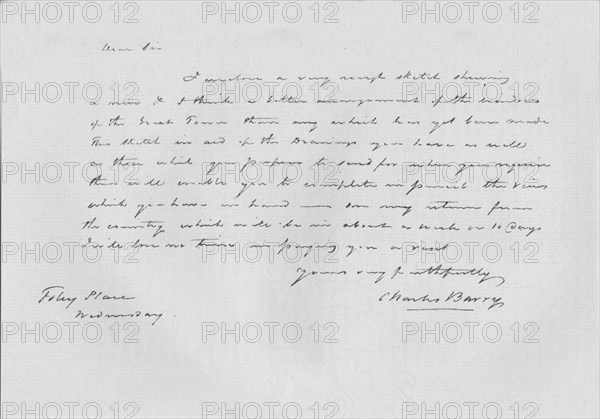 Dear Sir
I enclose a very rough sketch shewing
a new & I think a better arrangement of the windows
of the Great Tower than any which has yet been made
This sketch in aid of the Drawings you have as well
as those which you propose to send for when you require
them will enable you to complete in pencil the views
which you have in hand — On my return from
the country which will be in about a week or 10 Days
I will lose no time in paying you a visit
Yours very faithfully
Charles Barry
Foley Place
Wednesday.